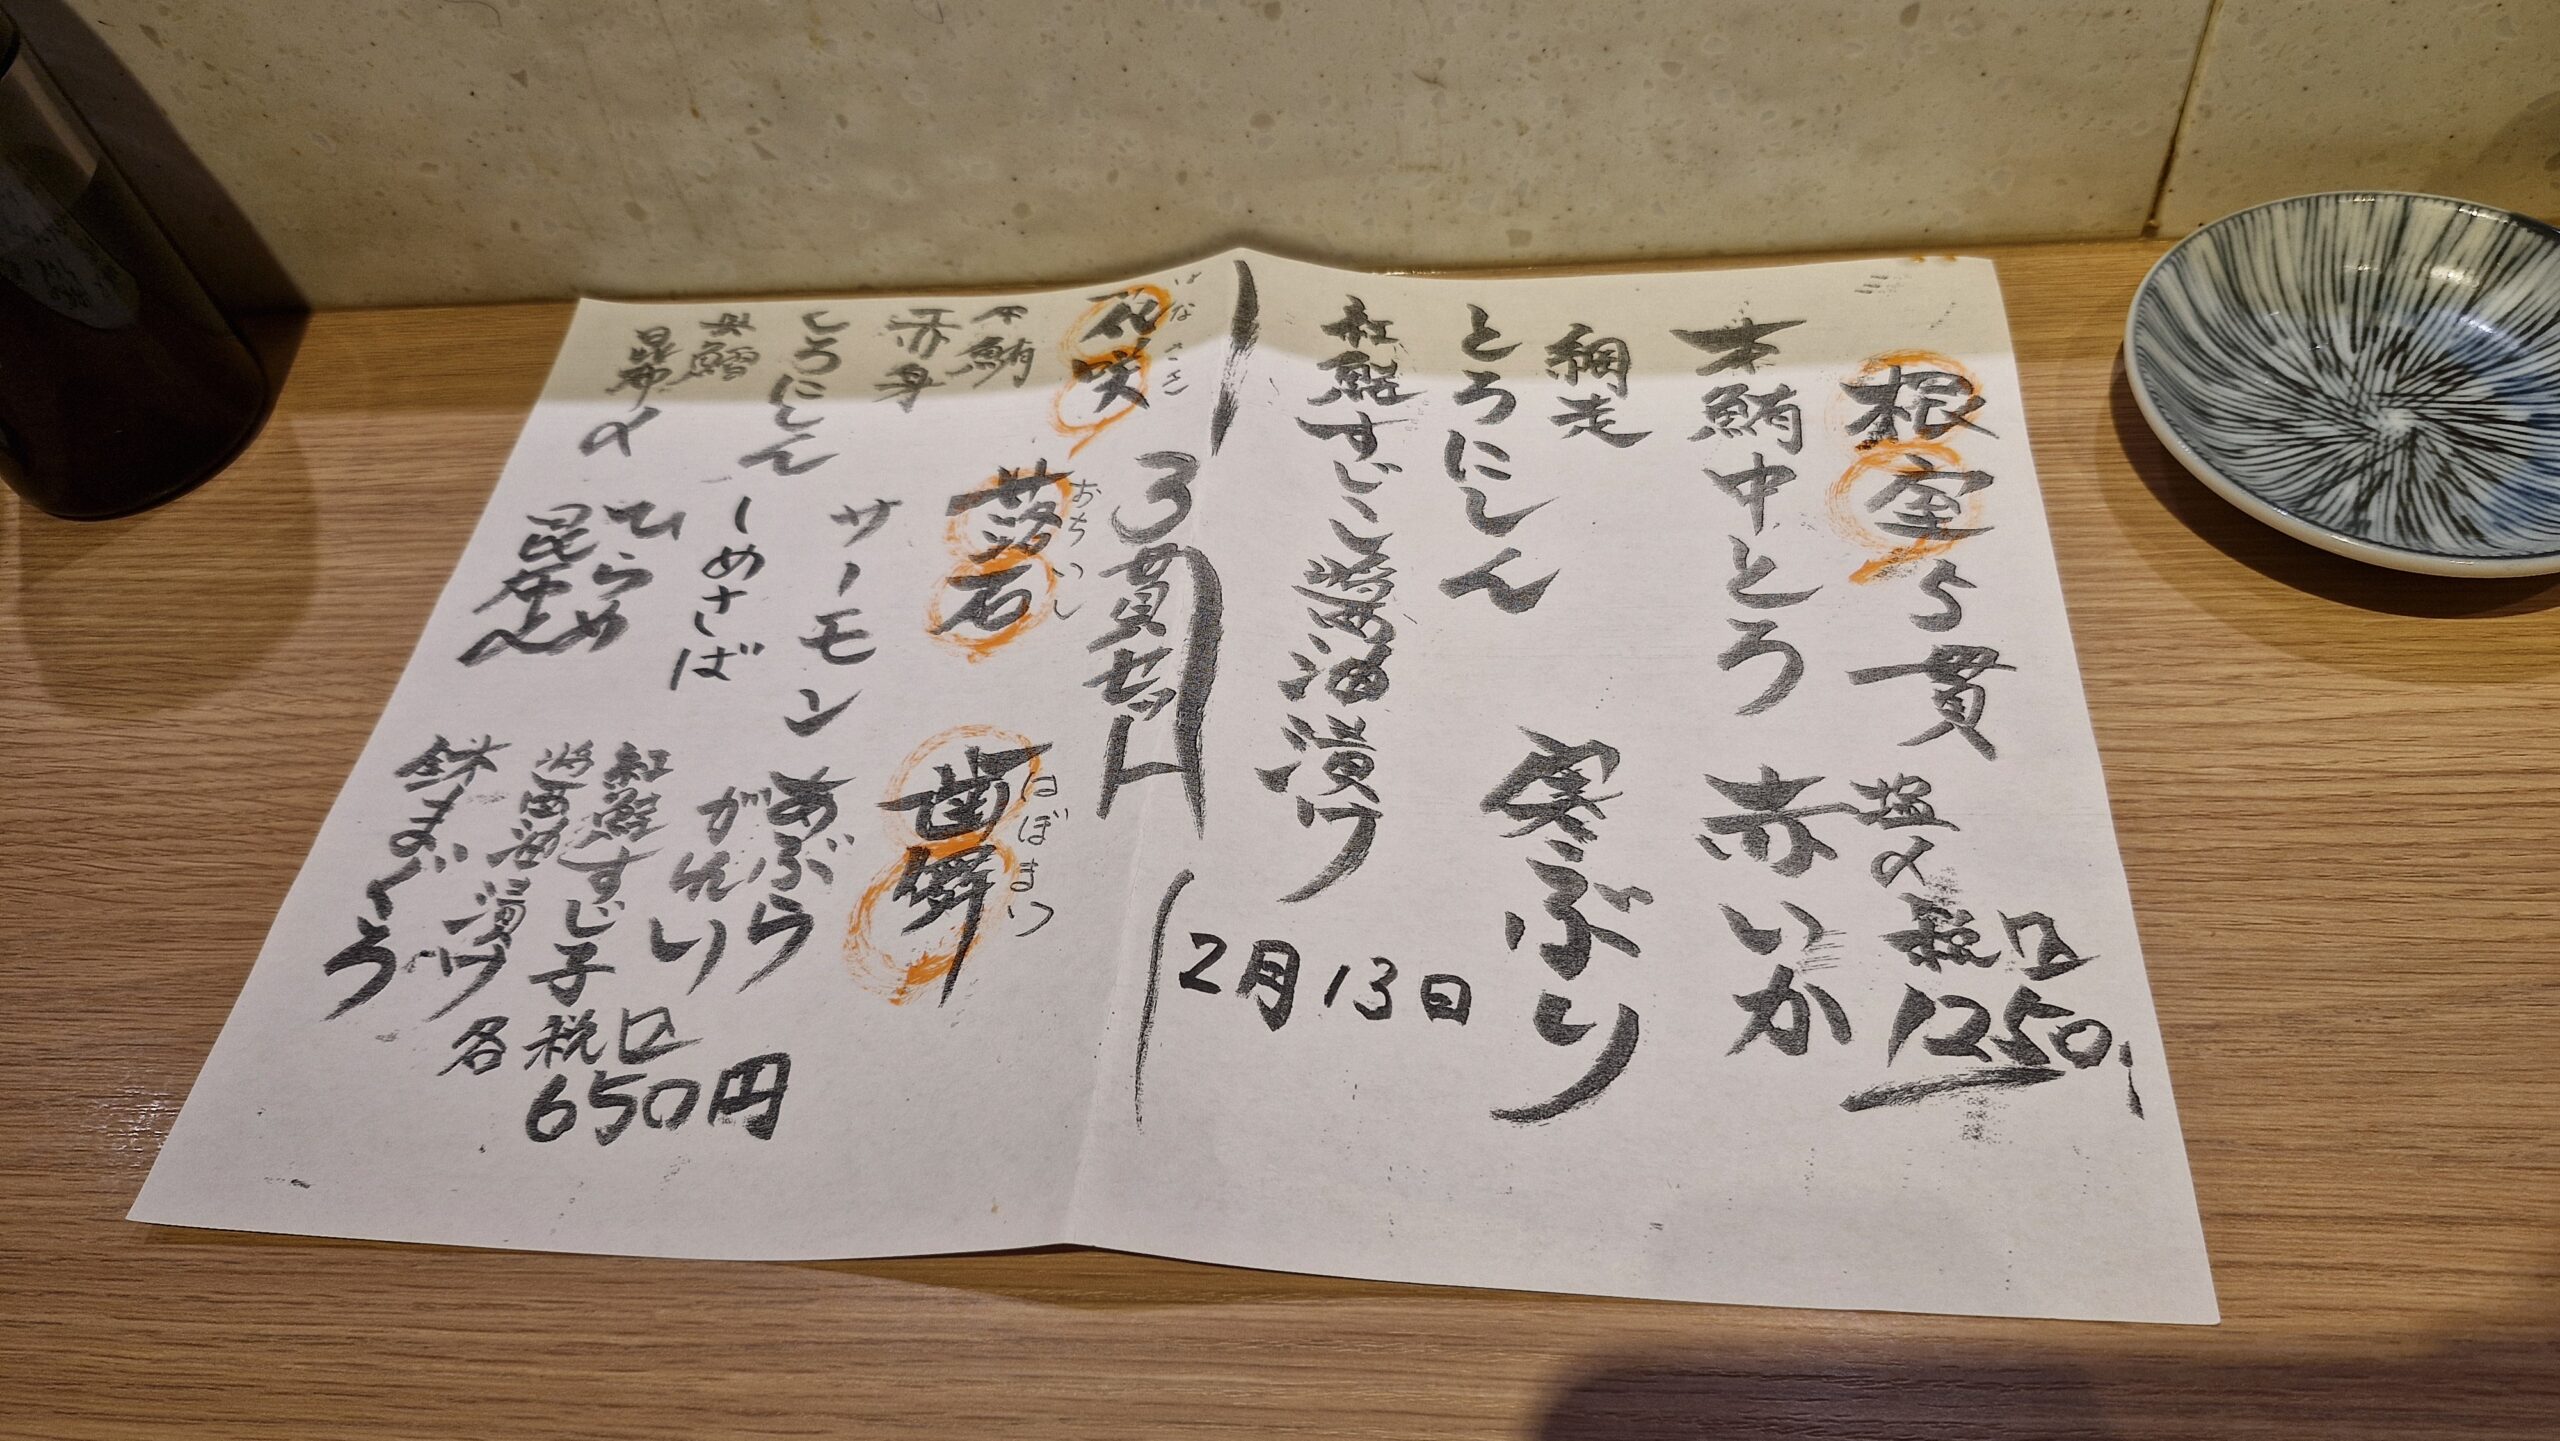 根室5貫 塩〆 税込1250
本鮪中とろ 赤いか
網走
とろにしん 寒ぶり
紅鮭すじこ醤油漬け
2月13日
3貫セット
花咲 はなさき
本鮪
赤身
とろにしん
真鱈
昆布〆
落石 おちいし
サーモン
しめさば
ひらめ
昆布〆
歯舞 はぼまい
あぶら
がれい
紅鮭すじ子
醤油漬け
鉄まぐろ
各税込
650円